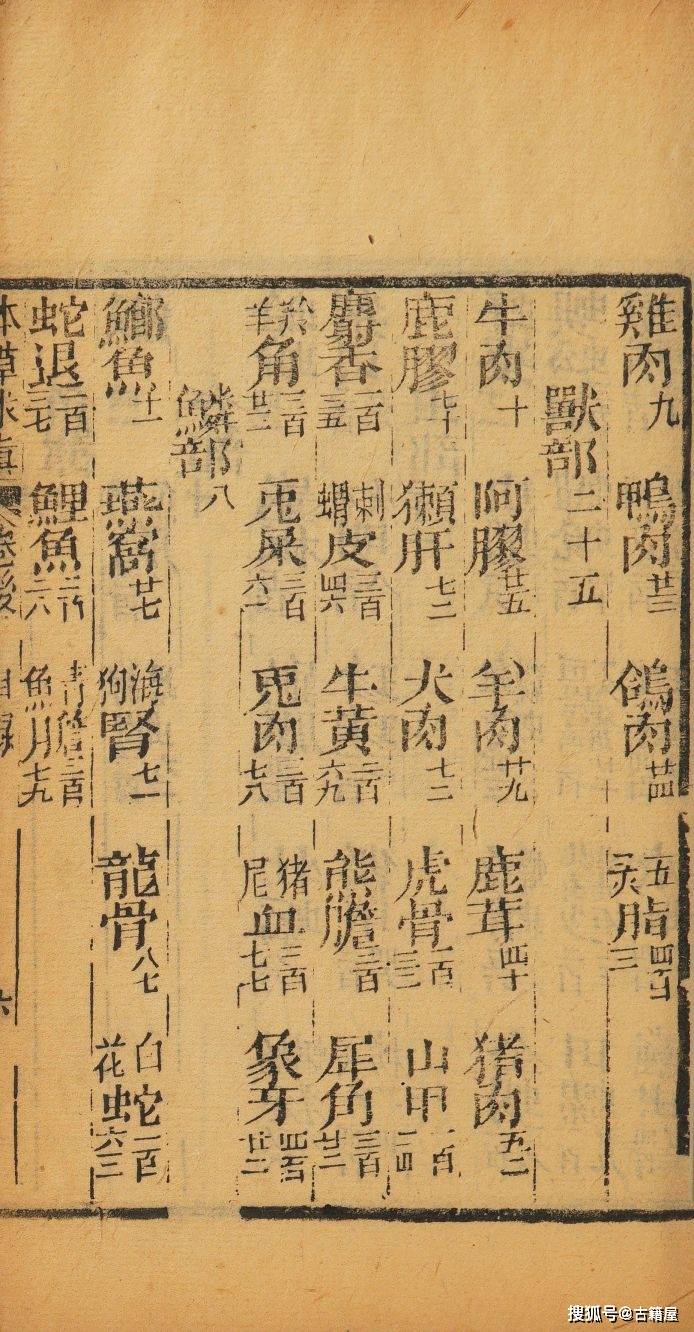 雞肉九 鴨肉廿三 鴿肉廿四 五灵脂四百三
獸部二十五
牛肉十 阿膠廿五 羊肉廿九 鹿茸四十 猪肉五二
鹿膠七十 獺肝七二 犬肉七二 虎骨一百三三 山甲一百一四
麝香二百三五 刺蝟皮三百四六 牛黄二百六九 熊膽三百 犀角三百廿三
羚羊角三百廿二 兎屎三百六一 兎肉三百七八 猪尼血三百七七 象牙四百廿二
鱗部八
魚十一 燕窩廿七 海狗腎七一 龍骨八七 白花蛇一百六三
蛇退一百三七 鯉魚二百二六 青魚膽二百七九
本草求真 六
搜狐号@古籍屋